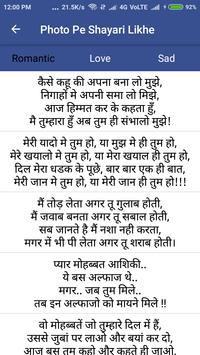 12:00 PM 21.5K/s 4G VoLTE 51%
Photo Pe Shayari Likhe
Romantic Love Sad
कैसे कहू की अपना बना लो मुझे,
निगाहों मे अपनी समा लो मिझे,
आज हिम्मत कर के कहता हूँ,
मै तुम्हारा हूँ अब तुम ही संभालो मुझे!
मेरी यादो मे तुम हो, या मुझ मे ही तुम हो,
मेरे खयालो मे तुम हो, या मेरा ख़याल ही तुम हो,
दिल मेरा धडक के पूछे, बार बार एक ही बात,
मेरी जान मे तुम हो, या मेरी जान ही तुम हो!!!
मैं तोड़ लेता अगर तू गुलाब होती,
मैं जवाब बनता अगर तू सबाल होती,
सब जानते है मैं नशा नही करता,
मगर में भी पी लेता अगर तू शराब होती।
प्यार मोहब्बत आशिकी..
ये बस अल्फाज थे..
मगर.. जब तुम मिले..
तब इन अल्फाजो को मायने मिले !!
वो मोहब्बतें जो तुम्हारे दिल में हैं,
उससे जुबां पर लाओ और बयां कर दो,
आज बस तुम कहो और कहते ही जाओ,